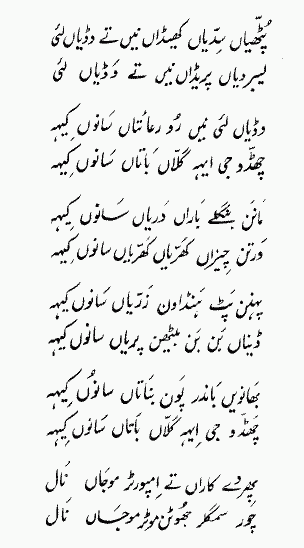 پُٹھیاں سِدّیاں کھیڈاں نیں تے وڈیاں لئی
لیسر دیاں پریڈاں نیں تے وَڈیاں لئی
وڈیاں لئی نیں رُو رعائتاں سانوں کِیہہ
چھڈّو جی ایہہ گلّاں باتاں سانوں کِیہہ
مانن بنگلے باراں دَریاں سانوں کِیہہ
وَرتن چیزاں کھَریاں کھَریاں سانوں کِیہہ
پہنن پٹ ہنڈاون زَرّیاں سَانوں کِیہہ
ڈیناں بَن بَن بیٹھن پریاں سانوں کیہہ
بھَانویں باندر پَون بنَاتاں سانوُں کِیہہ
چھَڈّو جی اِیہہ گلّاں بَاتاں سَانوں کِیہہ
پھِردے کاراں تے اِمپورٹر موجَاں نَال
چور سمگلر جھُوٹن موٹر موجَاں نَال